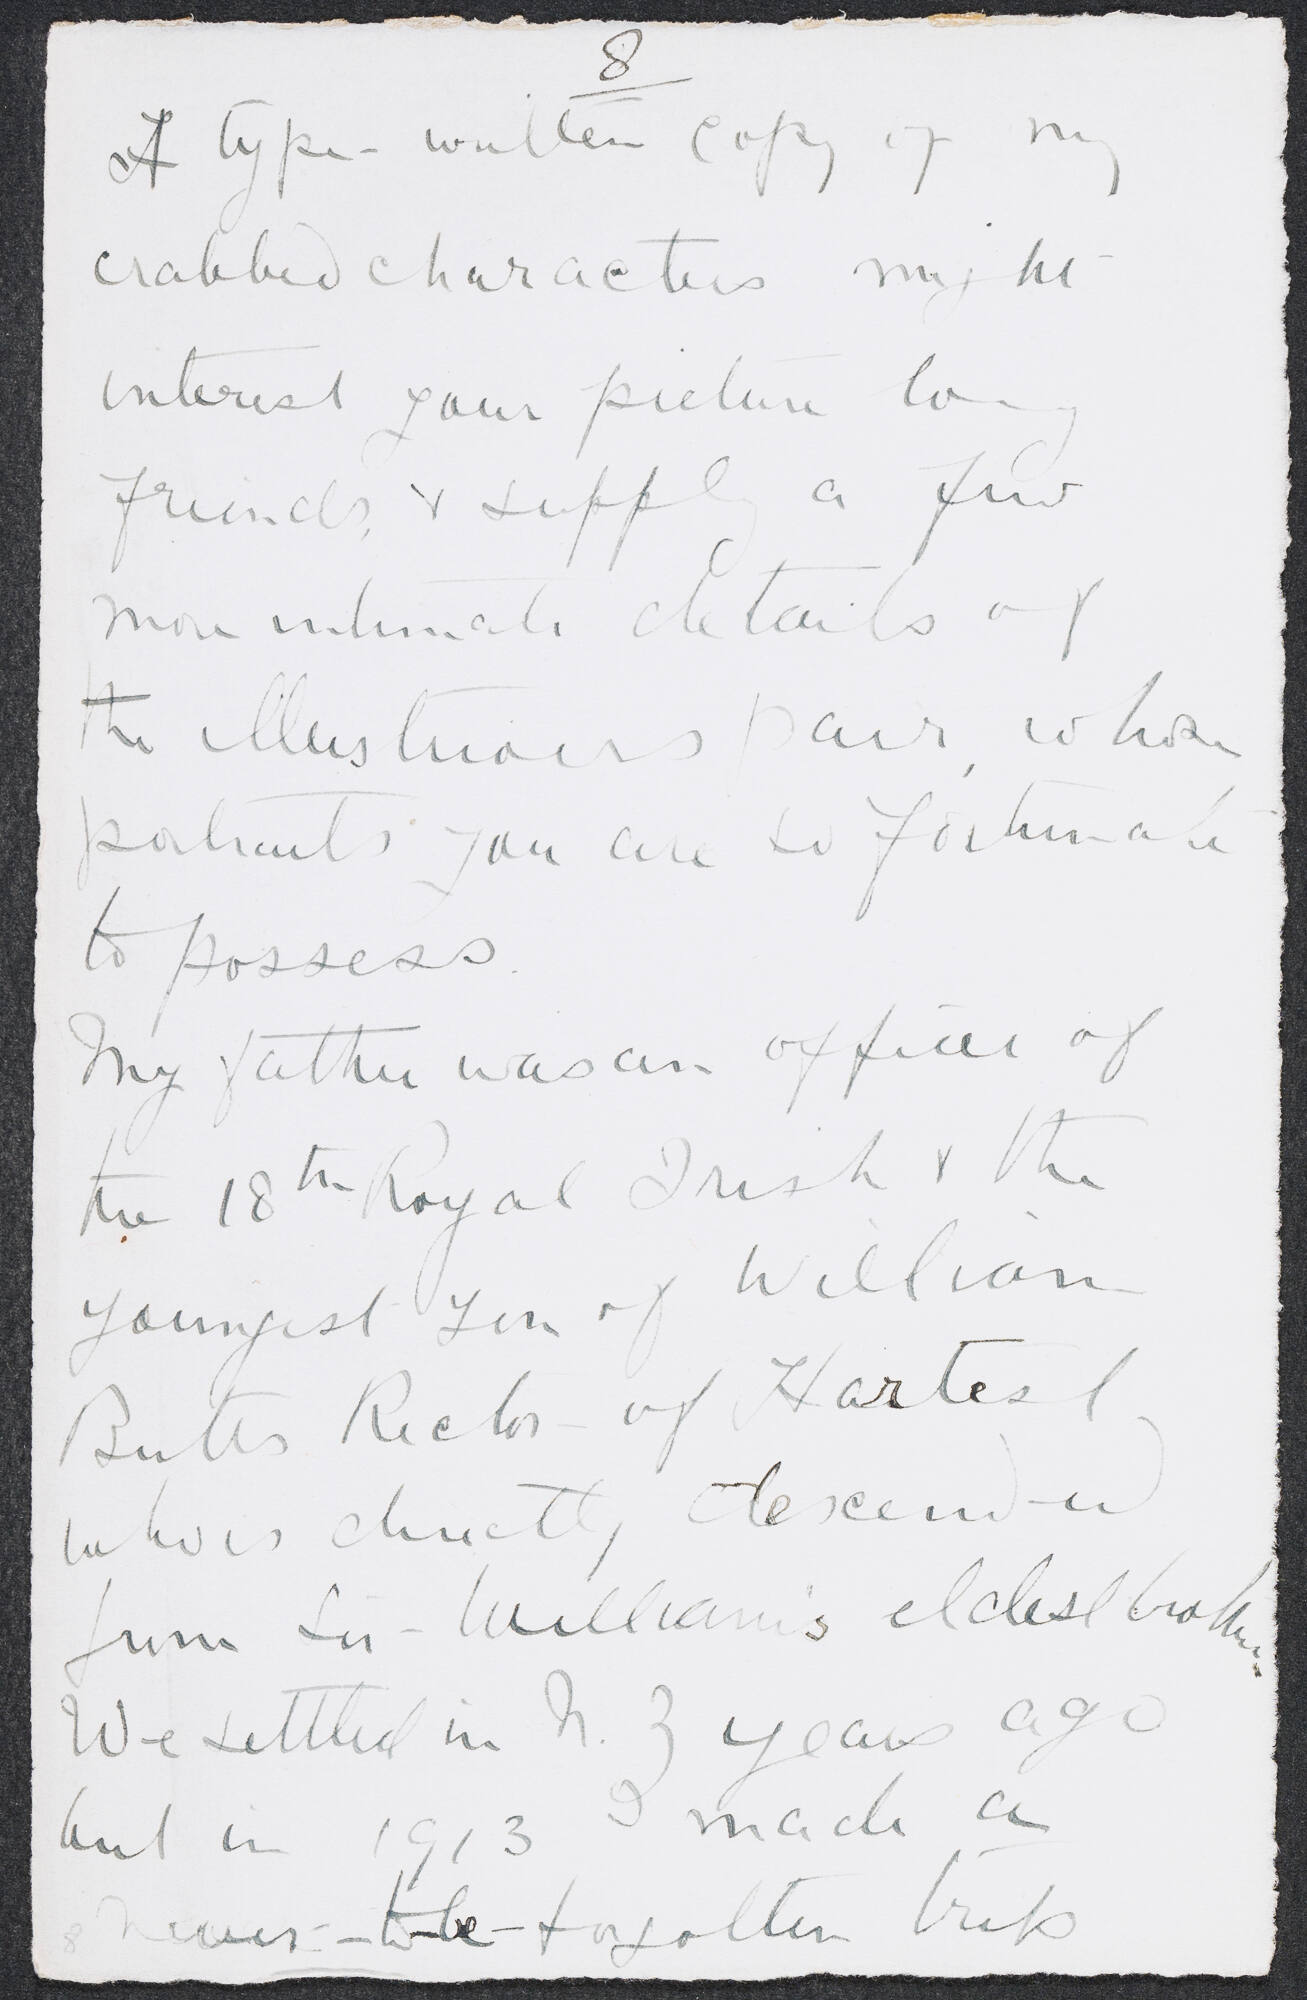 8
A type-written copy of my
crabbed characters might
interest your picture loving
friends, & supply a few
more intimate details of
the illustrious pair, whose
portraits you are so fortunate
to possess.
My father was an officer of
the 18th Royal Irish & the
youngest son of William
Butts Rector of Hartest,
who is directly descended
from Sir William's eldest brother.
We settled in N. Z years ago
but in 1913 I made a
never-to-be-forgotten trip
8